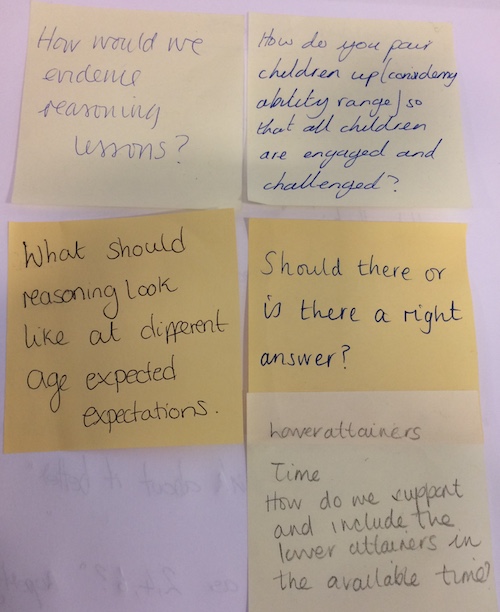 How would we
evidence
reasoning
lessons?
How do you pair
children up (considering
ability range) so
that all children
are engaged and
challenged?
What should
reasoning look
like at different
age expected
expectations.
Should there or
is there a right
answer?
Lower attainers
Time
How do we support
and include the
lower attainers in
the available time?